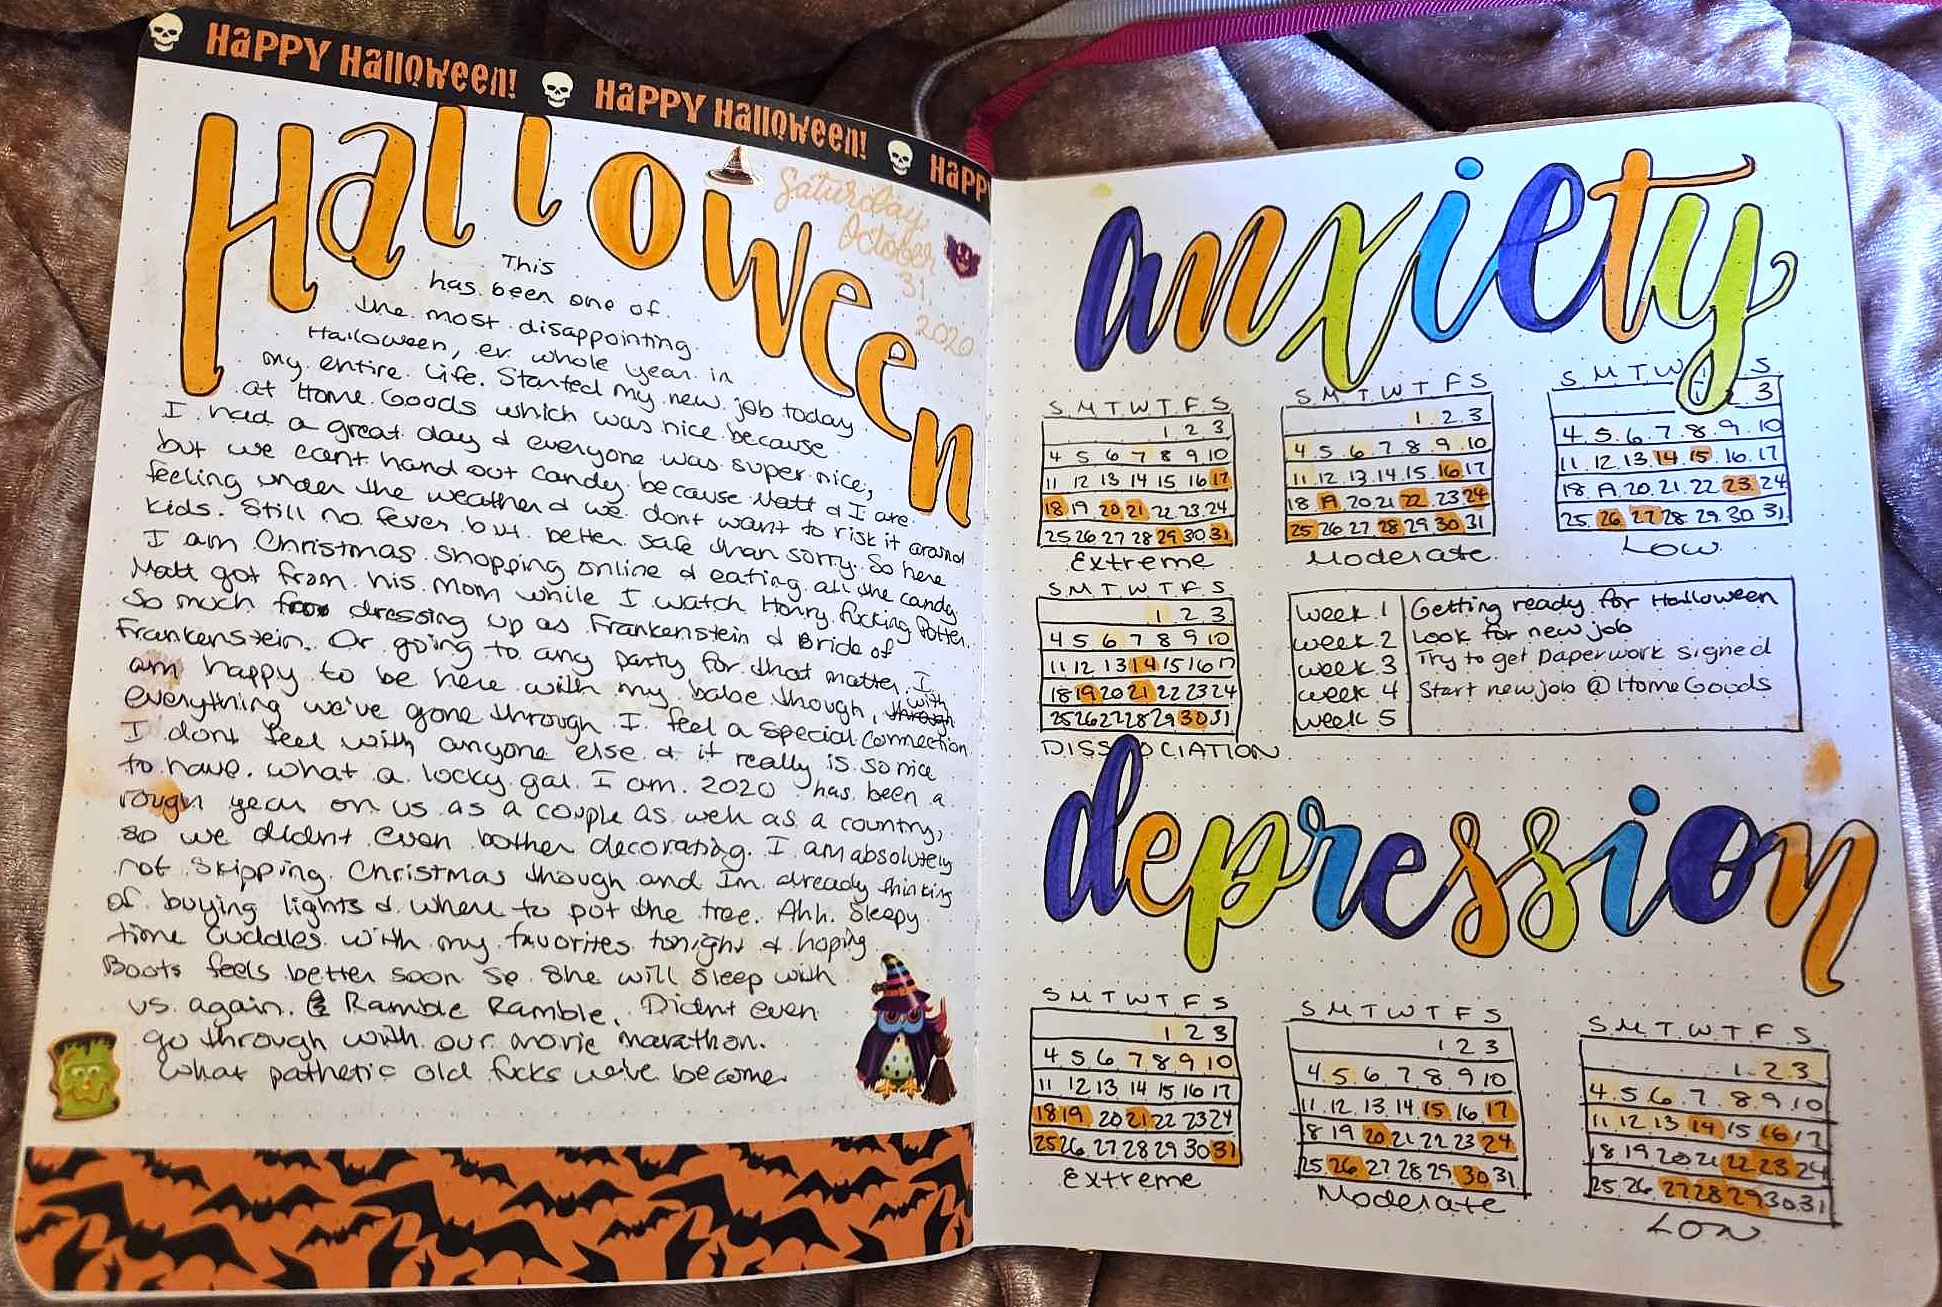 HAPPY Halloween! HAPPY Halloween! HAPP
Halloween
Saturday,
October
31,
2020
This
has been one of
the most disappointing
Halloween, er whole year in
my entire life. Started my new job today
at Home Goods which was nice because
I had a great day & everyone was super nice,
but we cant hand out candy because Matt & I are
feeling under the weather & we dont want to risk it around
kids. Still no fever but better safe than sorry. So here
I am Christmas shopping online & eating all the candy
Matt got from his mom while I watch Harry fucking Potter.
So much for dressing up as Frankenstein & Bride of
Frankenstein. Or going to any party for that matter. I
am happy to be here with my babe though, with through
everything we've gone through I feel a special connection
I dont feel with anyone else & it really is so nice
to have. what a lucky gal I am. 2020 has been a
rough year on us as a couple as well as a country,
so we didnt even bother decorating. I am absolutely
not skipping Christmas though and Im already thinking
of buying lights & where to put the tree. Ahh. Sleepy
time cuddles with my favorites tonight & hoping
Boots feels better soon so she will sleep with
us again. & Ramble Ramble. Didnt even
go through with our movie marathon.
What pathetic old fucks we've become
anxiety
S M T W T F S
1 2 3
4 5 6 7 8 9 10
11 12 13 14 15 16 17
18 19 20 21 22 23 24
25 26 27 28 29 30 31
Extreme
S M T W T F S
1 2 3
4 5 6 7 8 9 10
11 12 13 14 15 16 17
18 19 20 21 22 23 24
25 26 27 28 29 30 31
Moderate
S M T W S
2 3
4 5 6 7 8 9 10
11 12 13 14 15 16 17
18 19 20 21 22 23 24
25 26 27 28 29 30 31
Low
S M T W T F S
1 2 3
4 5 6 7 8 9 10
11 12 13 14 15 16 17
18 19 20 21 22 23 24
25 26 27 28 29 30 31
DISSOCIATION
week 1 Getting ready for Halloween
week 2 Look for new job
week 3 Try to get paperwork signed
week 4 Start new job @ HomeGoods
week 5
depression
S M T W T F S
1 2 3
4 5 6 7 8 9 10
11 12 13 14 15 16 17
18 19 20 21 22 23 24
25 26 27 28 29 30 31
Extreme
S M T W T F S
1 2 3
4 5 6 7 8 9 10
11 12 13 14 15 16 17
18 19 20 21 22 23 24
25 26 27 28 29 30 31
Moderate
S M T W T F S
1 2 3
4 5 6 7 8 9 10
11 12 13 14 15 16 17
18 19 20 21 22 23 24
25 26 27 28 29 30 31
LOW